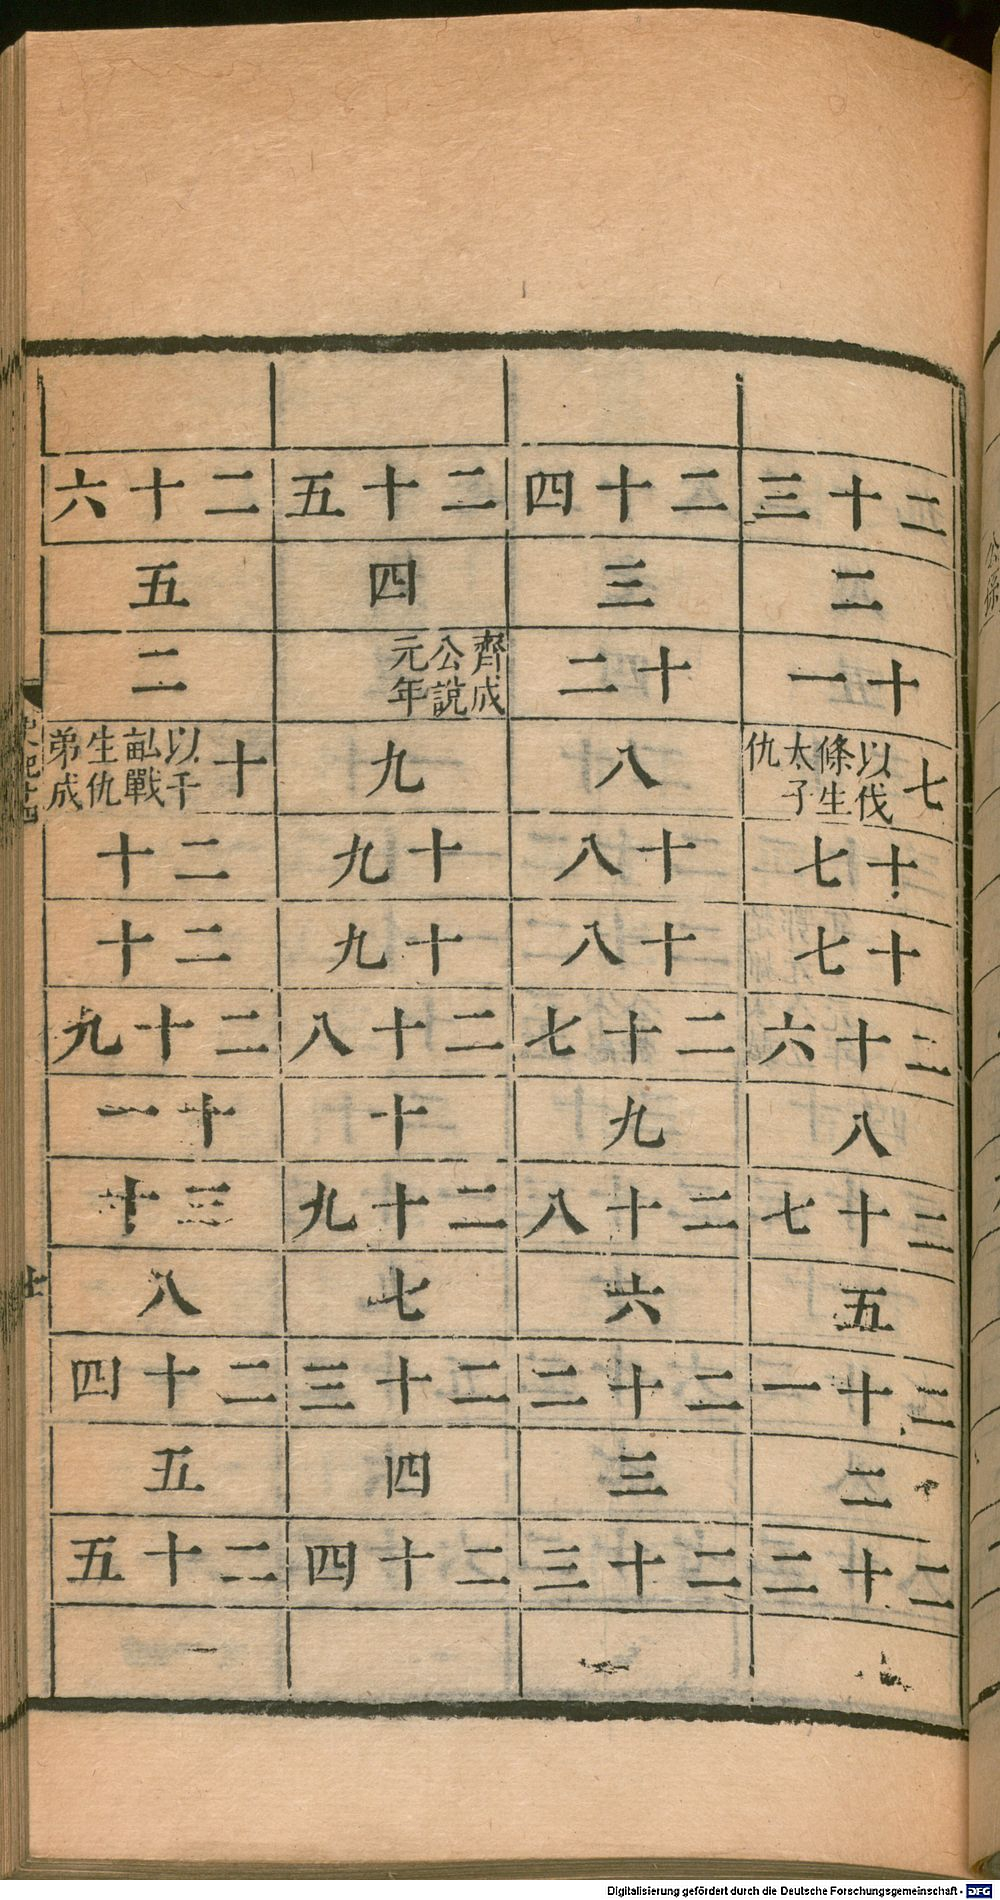 二十三
二
十一
七 以伐條生太子仇
十七
十七
二十六
八
二十七
五
二十一
二
二十二
二十四
三
十二
八
十八
十八
二十七
九
二十八
六
二十二
三
二十三
二十五
四
齊成公說元年
九
十九
十九
二十八
十
二十九
七
二十三
四
二十四
二十六
五
二
十 以千畝戰生仇弟成
二十
二十
二十九
十一
三十
八
二十四
五
二十五
Digitalisierung gefördert durch die Deutsche Forschungsgemeinschaft - DFG